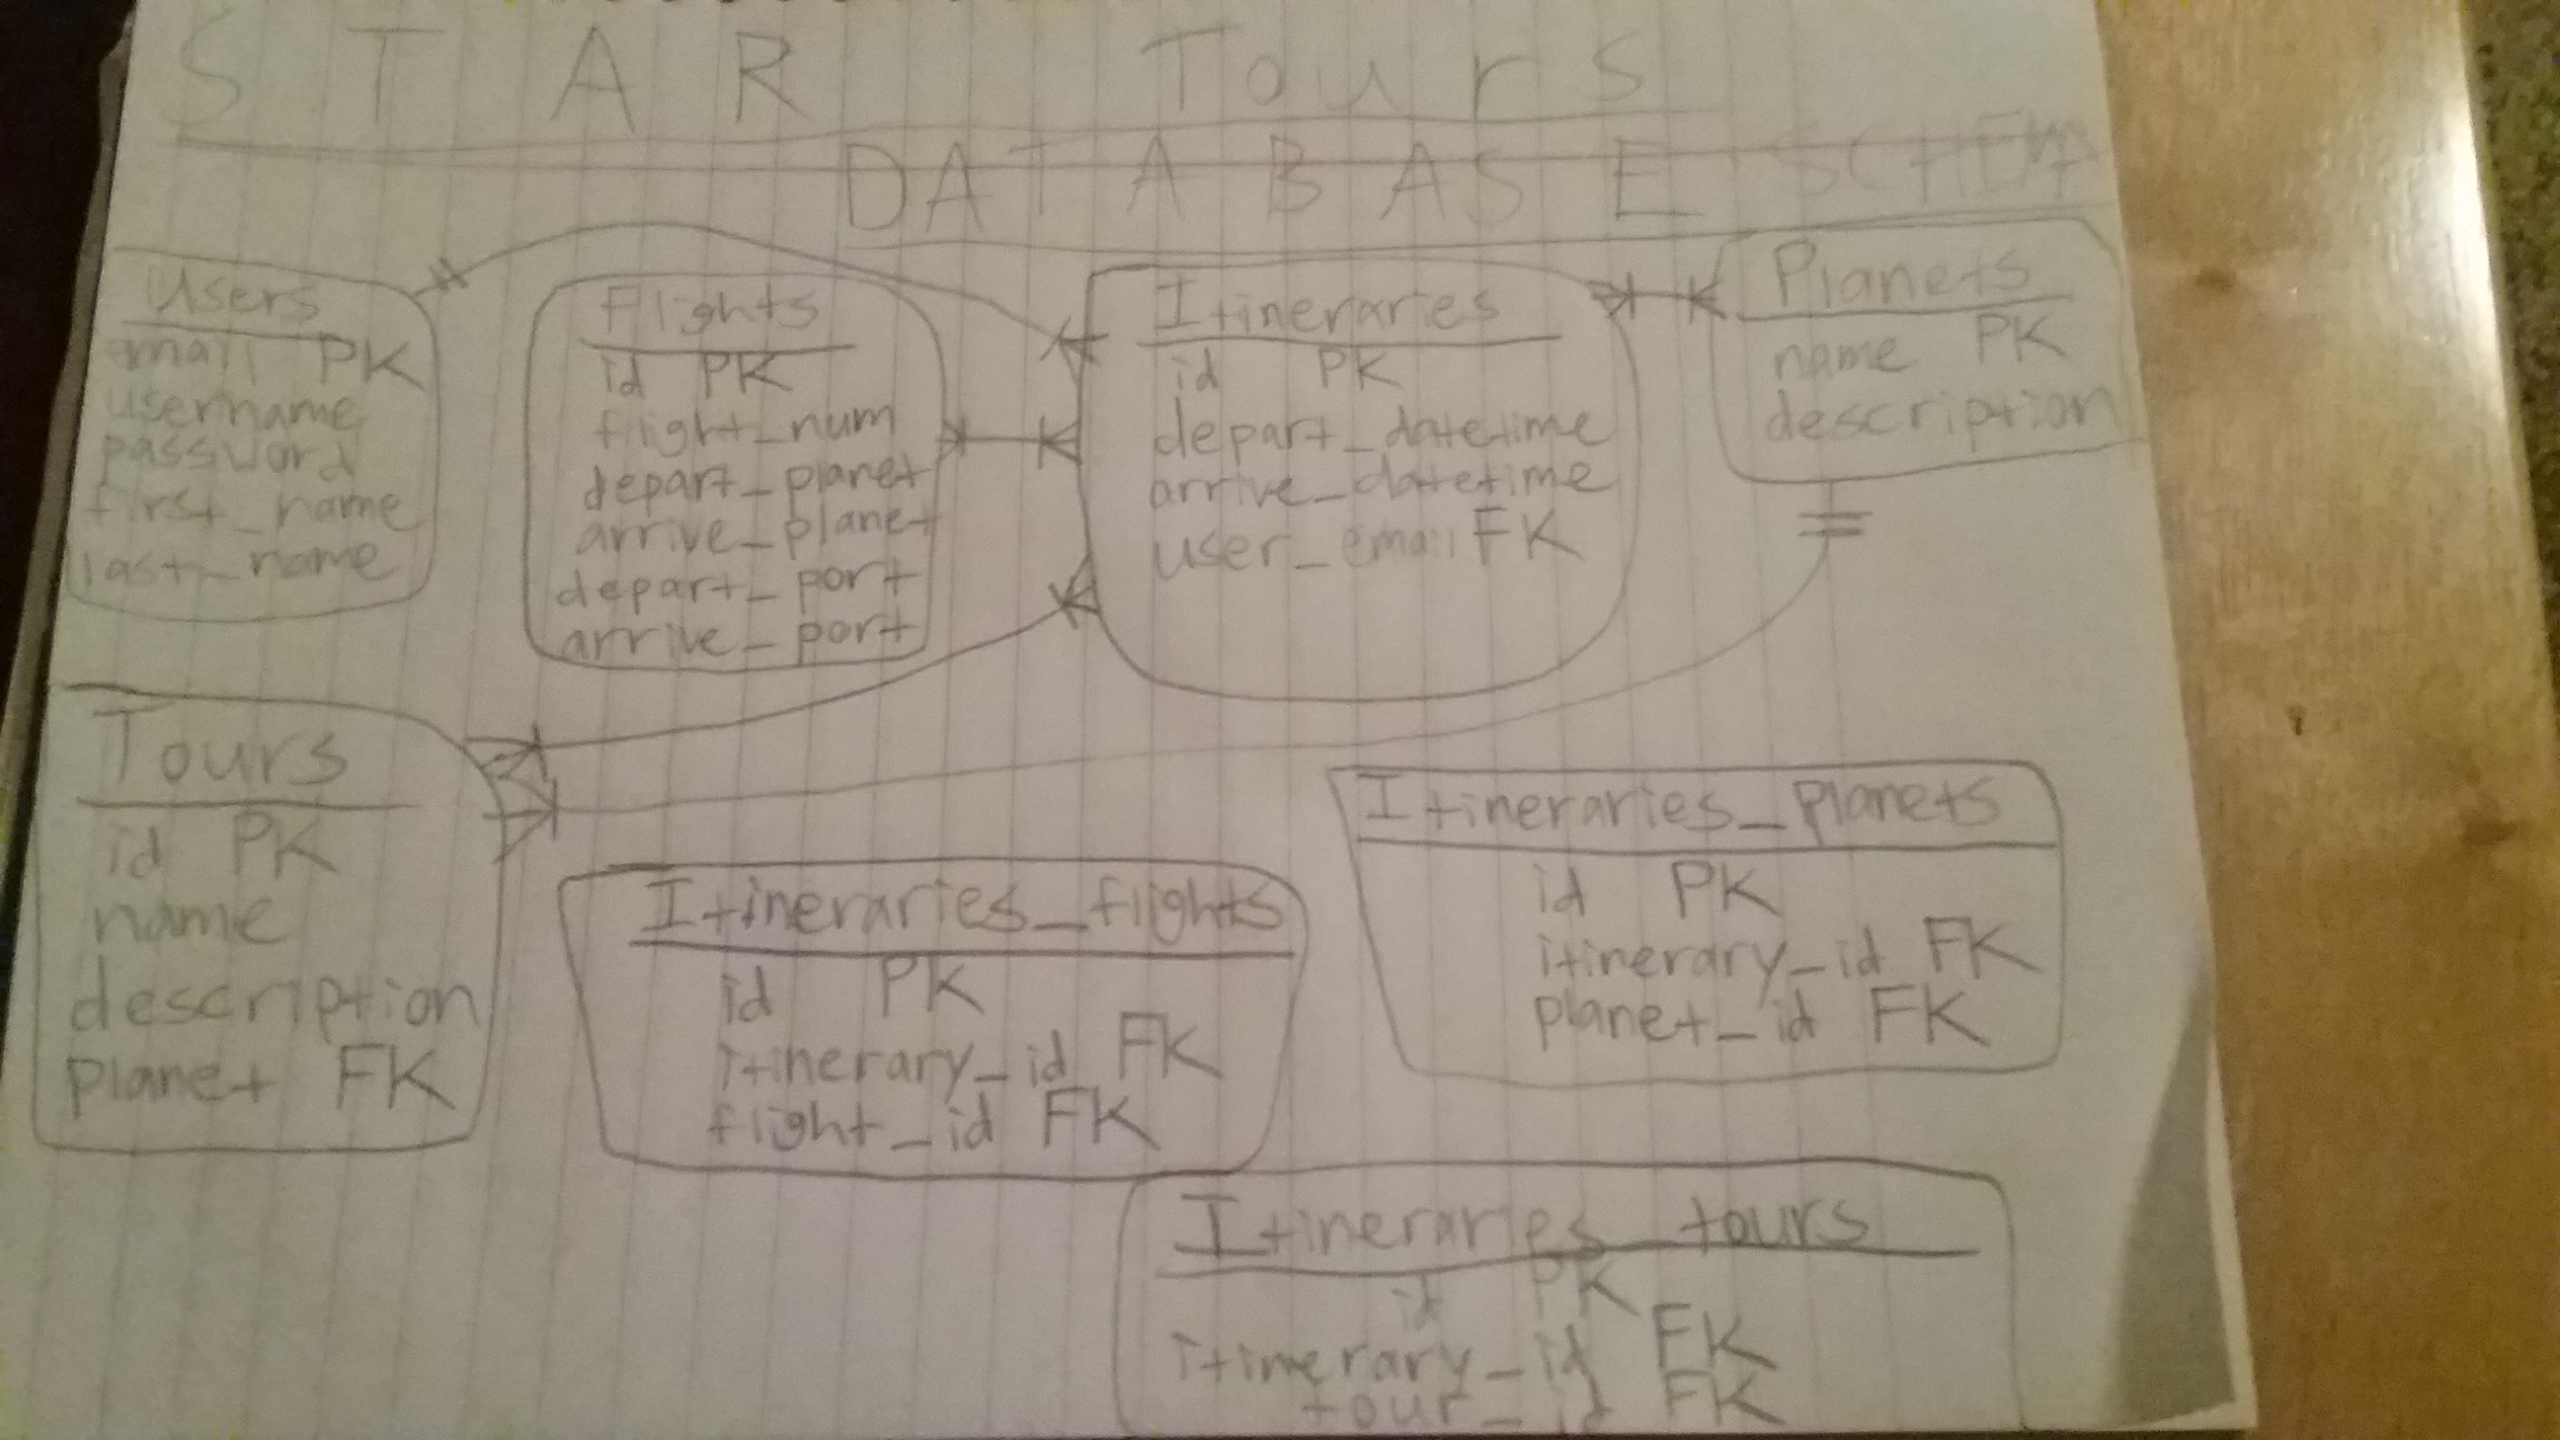 STAR Tours
DATABASE SCHEMA
Users
email PK
username
password
first_name
last_name
Flights
id PK
flight_num
depart_planet
arrive_planet
depart_port
arrive_port
Itineraries
id PK
depart_datetime
arrive_datetime
user_email FK
Planets
name PK
description
Tours
id PK
name
description
planet FK
Itineraries_flights
id PK
itinerary_id FK
flight_id FK
Itineraries_planets
id PK
itinerary_id FK
planet_id FK
Itineraries_tours
id PK
itinerary_id FK
tour_id FK